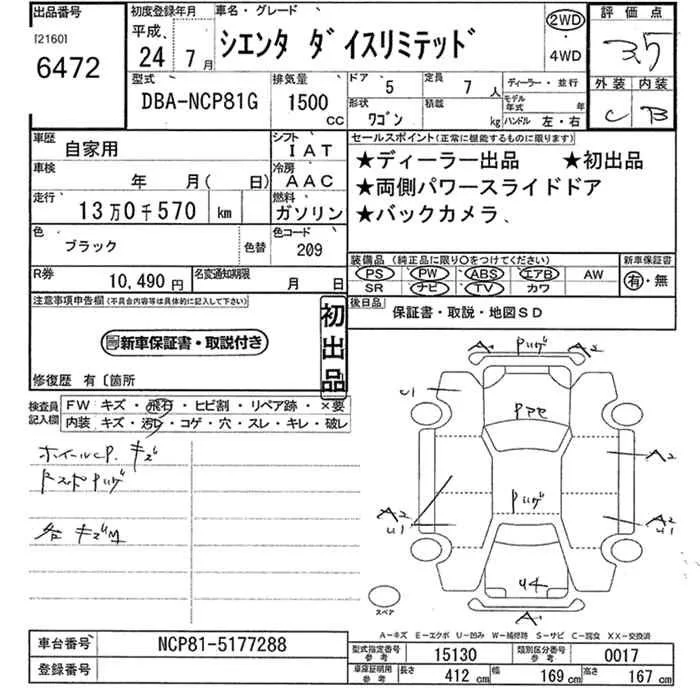 出品番号
[2160]
6472
初度登録年月
平成
24年 7月
車名・グレード
シエンタ ダイスリミテッド
2WD
・
4WD
評価点
3.5
外装 内装
C B
型式
DBA-NCP81G
排気量
1500 CC
ドア 5
定員 7 人
形状 ワゴン
積載 kg
ディーラー・並行
モデル年式 年
ハンドル 左・右
車歴 自家用
シフト IAT
車検 年 月( 日)
冷房 AAC
走行 13万0千570 km
燃料 ガソリン
色 ブラック 色替
色コード 209
R券 10,490円
名変通知期限 月 日
セールスポイント(正常に機能するものに限ります)
★ディーラー出品 ★初出品
★両側パワースライドドア
★バックカメラ、
装備品(純正品に限り○をつけてください)
PS PW ABS エアB AW
SR ナビ TV カワ
新車保証書
有・無
後日品
保証書・取説・地図SD
注意事項申告欄(不具合内容等は具体的に記入して下さい)
新車保証書・取説付き
初出品
修復歴 有〔箇所
検査員記入欄
FW キズ・飛石・ヒビ割・リペア跡・×要
内装 キズ・汚レ・コゲ・穴・スレ・キレ・破レ
ホイールCP. キズ
各キズM
A2
U1
A2
A2
U1
A2
U1
U4
A1
スペア
A-キズ E-エクボ U-凹み W-補修跡 S-サビ C-腐食 XX-交換済
車台番号 NCP81-5177288
登録番号
型式指定番号 参考 15130
類別区分番号 参考 0017
車庫証明用 参考 長さ 412 cm 幅 169 cm 高さ 167 cm